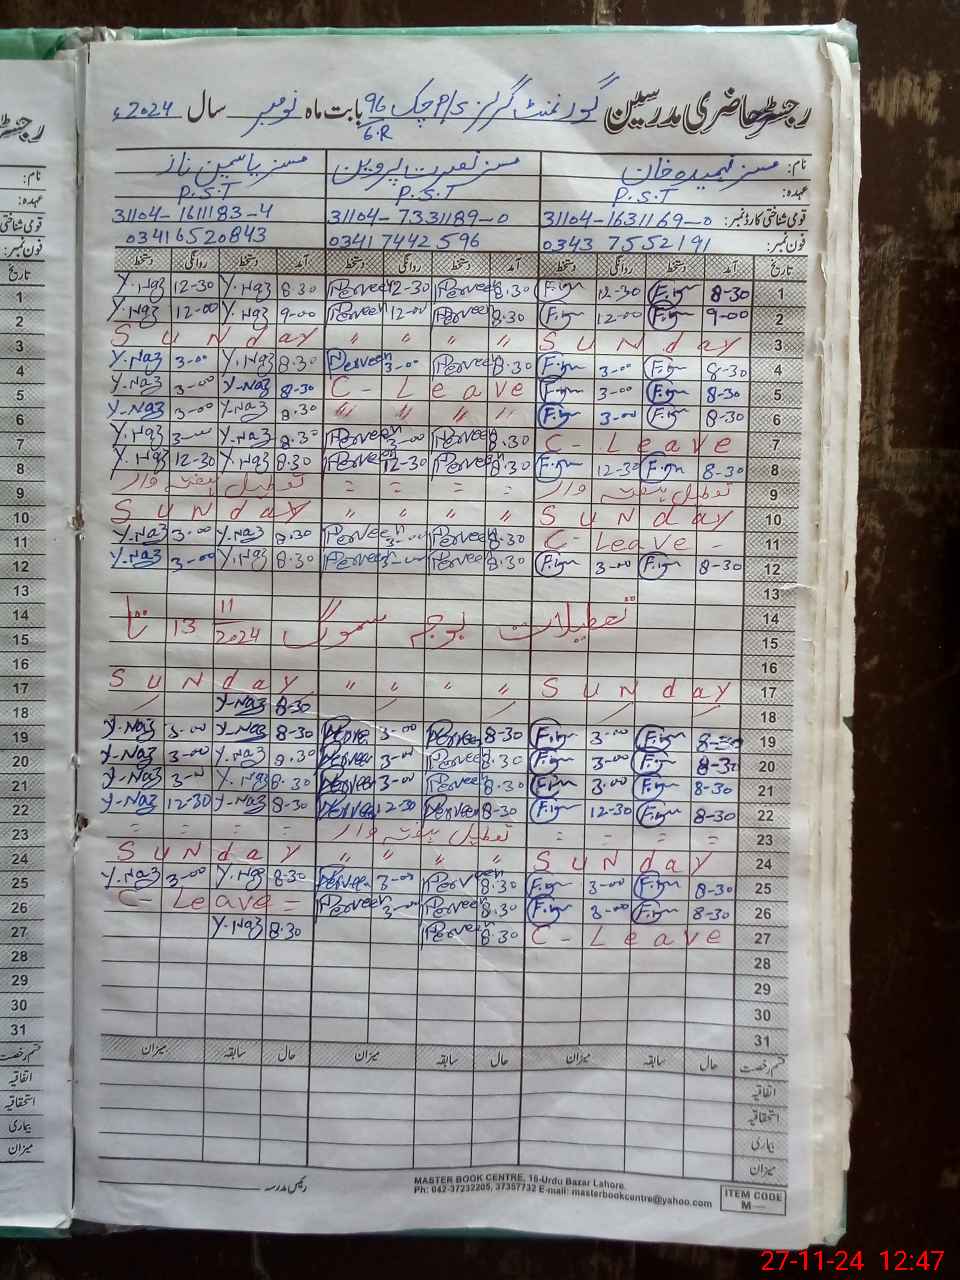 رجسٹر حاضری مدرسین گورنمنٹ گرلز P/S چک 96/6.R بابت ماہ نومبر سال 2024ء
نام: مسز فہمیدہ خان مسز نصرت پروین مسز یاسمین ناز
عہدہ: P.S.T P.S.T P.S.T
قومی شناختی کارڈ نمبر: 31104-1631169-0 31104-7331189-0 31104-1611183-4
فون نمبر: 0343 7552191 0341 7442596 03416520843
تاریخ آمد دستخط روانگی دستخط آمد دستخط روانگی دستخط آمد دستخط روانگی دستخط
1 8-30 12-30 8.30 Perveen 12-30 Perveen 8.30 Y.Naz 12-30 Y.Naz
2 9-00 12-00 8.30 Perveen 12-00 Perveen 9-00 Y.Naz 12-00 Y.Naz
3 Sunday " " " " Sunday
4 8-30 3-00 8.30 Perveen 3-00 Perveen 8.30 Y.Naz 3-00 Y.Naz
5 8-30 3-00 C- Leave 8-30 Y-Naz 3-00 Y-Naz
6 8-30 3-00 " " " " 8.30 Y-Naz 3-00 Y-Naz
7 C- Leave 8.30 Perveen 3-00 Perveen 8.30 Y.Naz 3-00 Y.Naz
8 8-30 12-30 8.30 Perveen 12-30 Perveen 8.30 Y.Naz 12-30 Y.Naz
9 تعطیل ہفتہ وار = = = = تعطیل ہفتہ وار
10 Sunday " " " " Sunday
11 C- Leave - 8.30 Perveen 3-00 Perveen 8.30 Y.Naz 3-00 Y-Naz
12 8-30 3-00 8.30 Perveen 3-00 Perveen 8.30 Y.Naz 3-00 Y-Naz
13
14 تعطیلات بوجہ سموگ 13 11/2024 تا
15
16
17 Sunday " " " " Sunday
18 8-30 Y-Naz
19 8-30 3-00 8-30 Perveen 3-00 8-30 Y-Naz 3-00 Y-Naz
20 8-30 3-00 8.30 Perveen 3-00 8.30 Y.Naz 3-00 Y-Naz
21 8-30 3-00 8.30 Perveen 3-00 8.30 Y.Naz 3-00 Y-Naz
22 8-30 12-30 8-30 Perveen 12-30 Perveen 8-30 Y-Naz 12-30 Y-Naz
23 = = = = تعطیل ہفتہ وار = = = =
24 Sunday " " " " Sunday
25 8-30 3-00 8.30 Perveen 3-00 Perveen 8-30 Y.Naz 3-00 Y.Naz
26 8-30 3-00 8.30 Perveen 3-00 Perveen C- Leave =
27 C- Leave 8.30 Perveen 8.30 Y.Naz
28
29
30
31
قسم رخصت حال سابقہ میزان حال سابقہ میزان حال سابقہ میزان
اتفاقیہ
استحقاقیہ
بیماری
میزان
رئیس مدرسہ
MASTER BOOK CENTRE, 16-Urdu Bazar Lahore.
Ph: 042-37232205, 37357732 E-mail: masterbookcentre@yahoo.com
ITEM CODE
M—
نام:
عہدہ:
قومی شناختی
فون نمبر:
تاریخ
1
2
3
4
5
6
7
8
9
10
11
12
13
14
15
16
17
18
19
20
21
22
23
24
25
26
27
28
29
30
31
قسم رخصت
اتفاقیہ
استحقاقیہ
بیماری
میزان
27-11-24 12:47